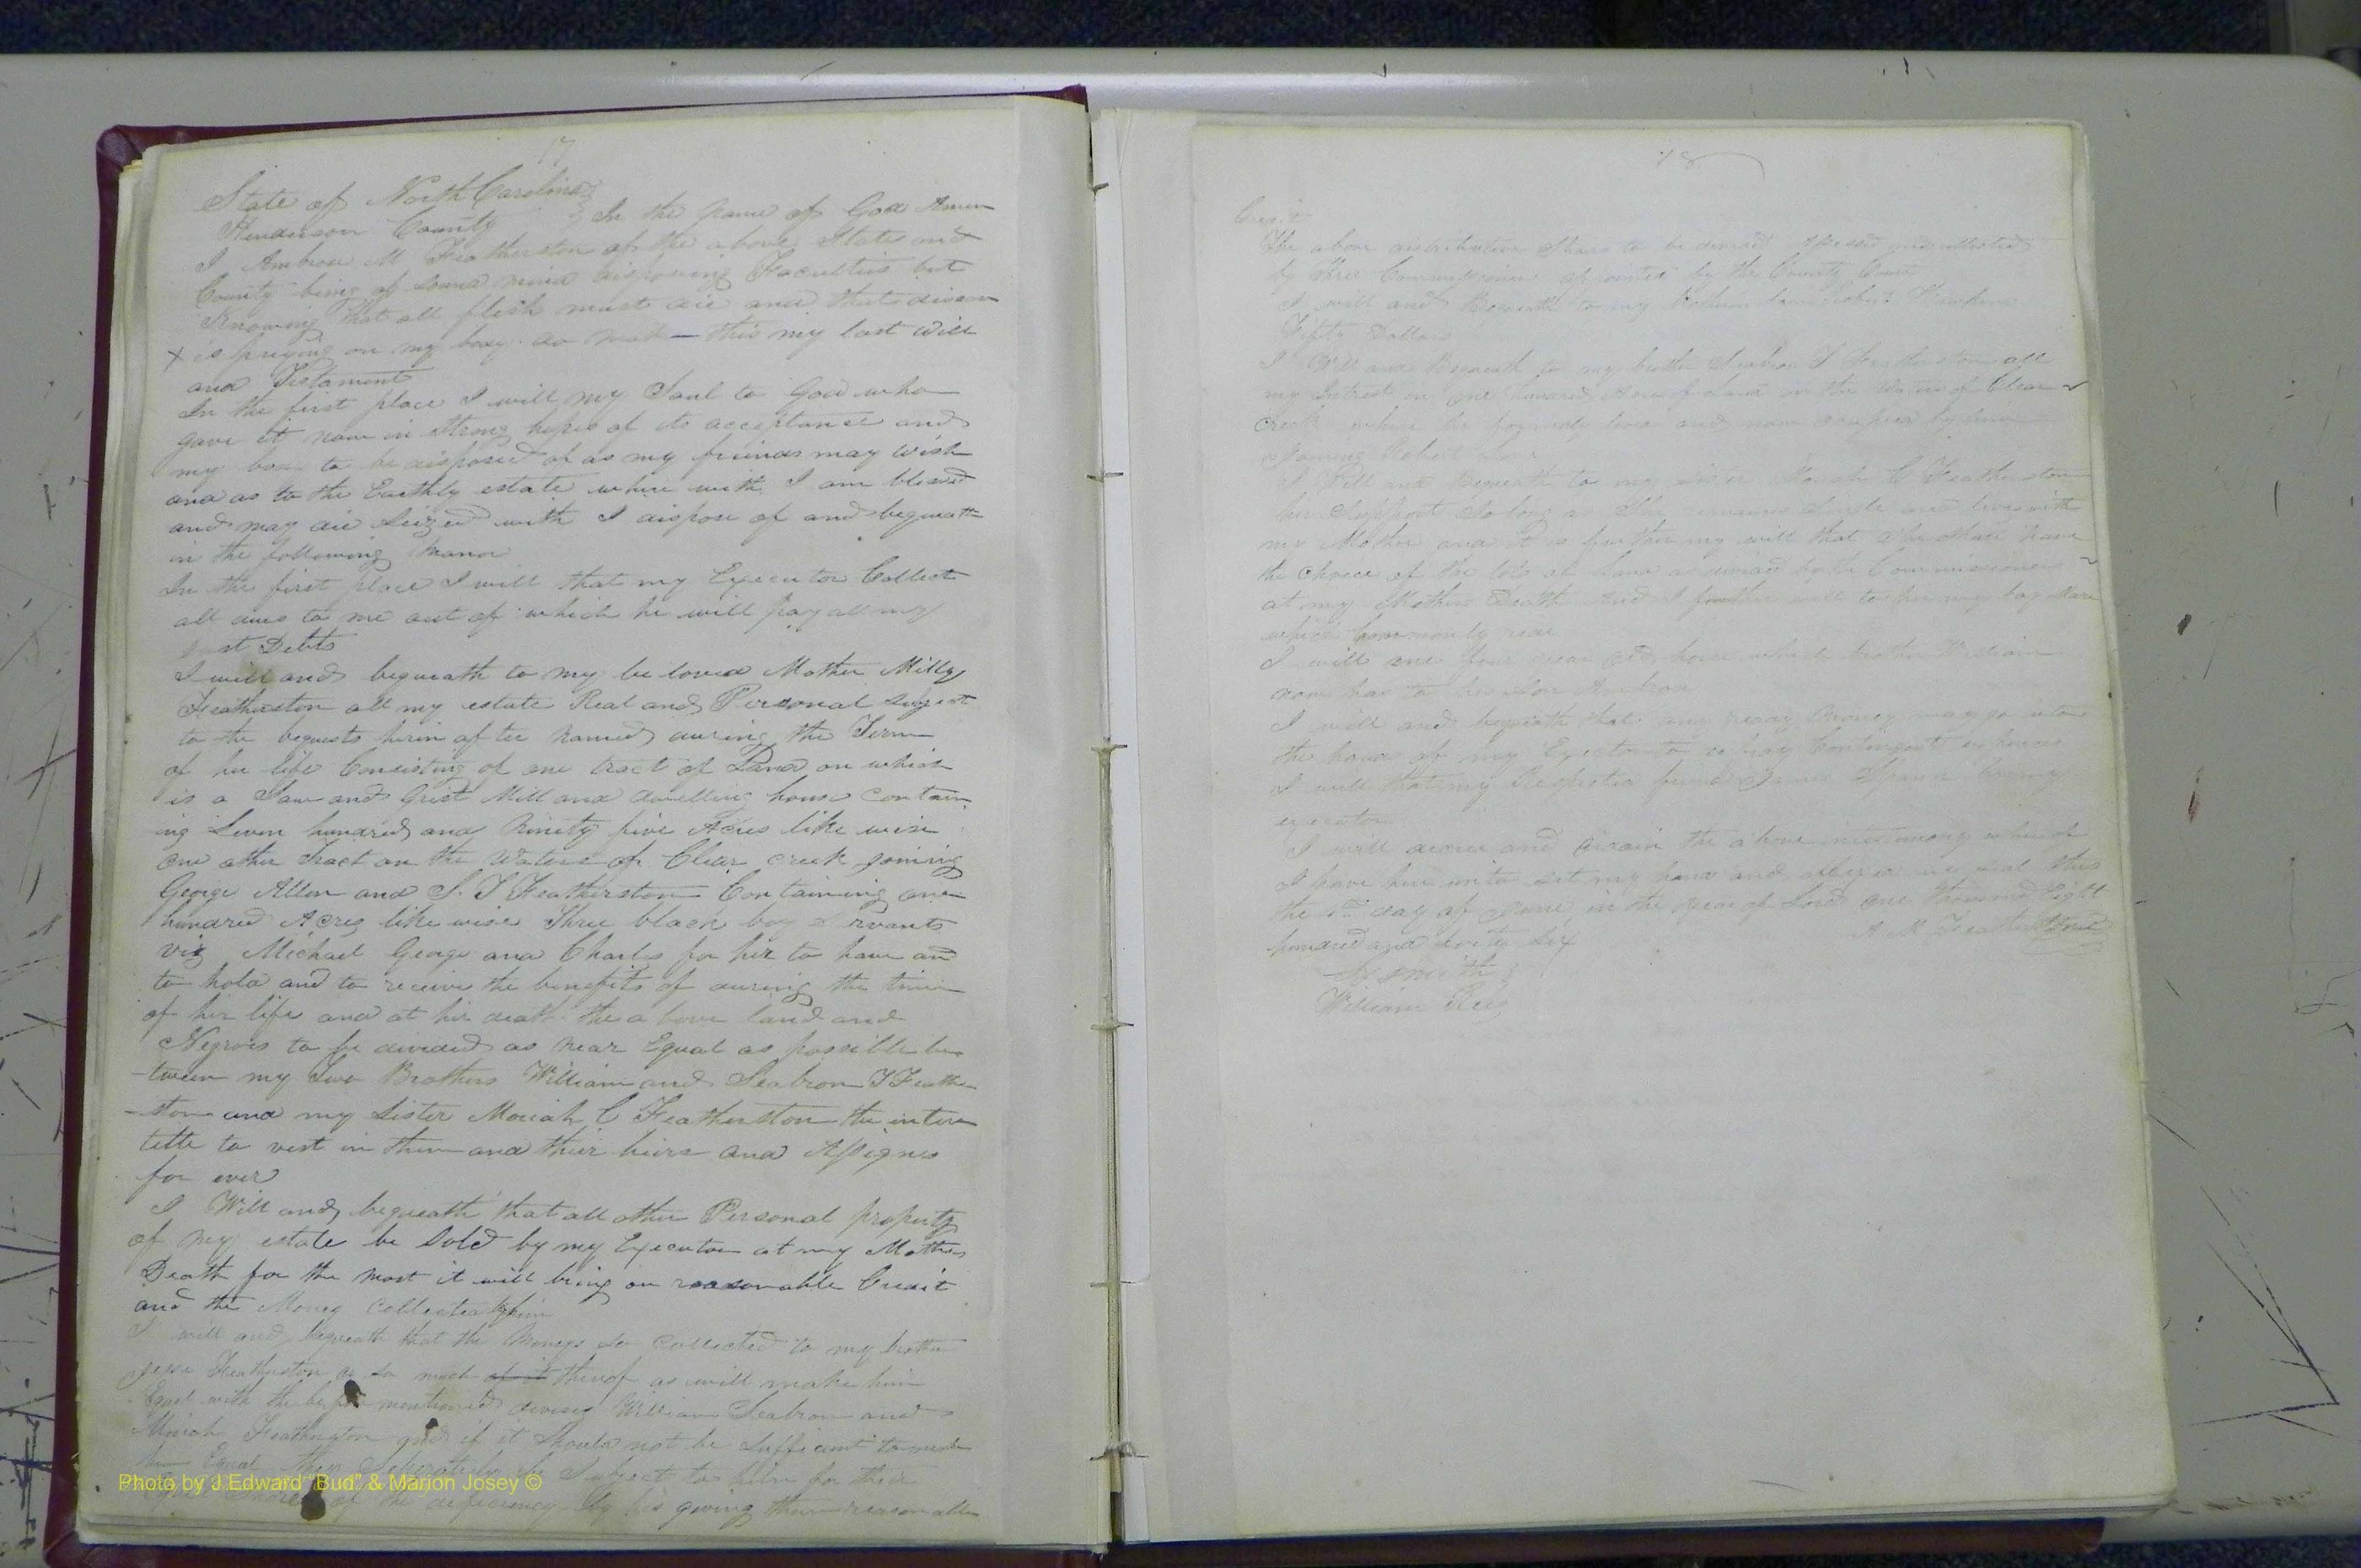 17
State of North Carolina
Henderson County } In the Name of God Amen
I Ambrose M Featherston of the above State and
County being of Sound mind disposing Faculties but
Knowing that all flesh must die and that disease
X is preying on my body do make this my last Will
and Testament
In the first place I will my Soul to God who
gave it now in Strong hopes of its acceptance and
my body to be disposed of as my friends may wish
and as to the Earthly estate where with I am blessed
and may die Seized with I dispose of and bequeath
in the following Manor
In the first place I will that my Executor Collect
all dues to me out of which he will pay all my
just Debts
I will and bequeath to my beloved Mother Milly
Featherston all my estate Real and Personal Subject
to the bequests herin after Named during the Term
of her life Consisting of one tract of Land on which
is a Saw and Grist Mill and dwelling house contain
ing Seven hundred and Ninety five Acres like wise
one other Tract on the Waters of Clear creek joining
George Allen and S. T Featherston Containing one
hundred Acres like wise Three black boy Servants
viz Michael George and Charles for her to have and
to hold and to receive the benefits of during the time
of her life and at her death the above land and
Negroes to be devided as near Equal as possible be
-tween my Two Brothers William and Seabron T Feather
-ston and my Sister Moriah C Featherston the intire
title to vest in them and their heirs and Assignes
for ever
I Will and bequeath that all other Personal property
of my estate be Sold by my Executor at my Mothers
Death for the most it will bring on reasonable Credit
and the Money collected by him
I will and bequeath that the Moneys So Collected to my brother
Jesse Featherston or so much of it thereof as will make him
Equel with the before mentioned William Seabron and
Moriah Featherston and if it Should not be Sufficient to make
him Equal then Subject to him for their
of the deficiency by his giving them reasonable
Photo by J.Edward "Bud" & Marion Josey ©
18
Credit
The above distributive Shares to be devised assessed and allotted
by three Commissioners appointed by the County Court
I will and Bequeath to my
Fifty Dollars
I Will and Bequeath to my brother Seabron T Featherston all
my Intrest in one hundred Acres of Land on the Waters of Clear
Creek where he formerly lived and now occupied by him
Joining Robert
I Will and Bequeath to my Sister Moriah C Featherston
her Support So long as She remains Single and lives with
my Mother and it is further my will that She Shall have
the choice of the lots of Land as devised by the Commissioners
at my Mothers Death And I further will to her my bay Mare
which Commonly
I will one four year old horse which brother William
now has to his Son Ambrose
I will and bequeath that any ready Money may go into
the hand of my Executor to pay Contingent expences
I will that my Respected friend James be my
executor
I will and the above in testimony whereof
I have here unto set my hand and seal this
the day of June in the year of Lord one thousand Eight
hundred and forty Six A M Featherston
Smith
William